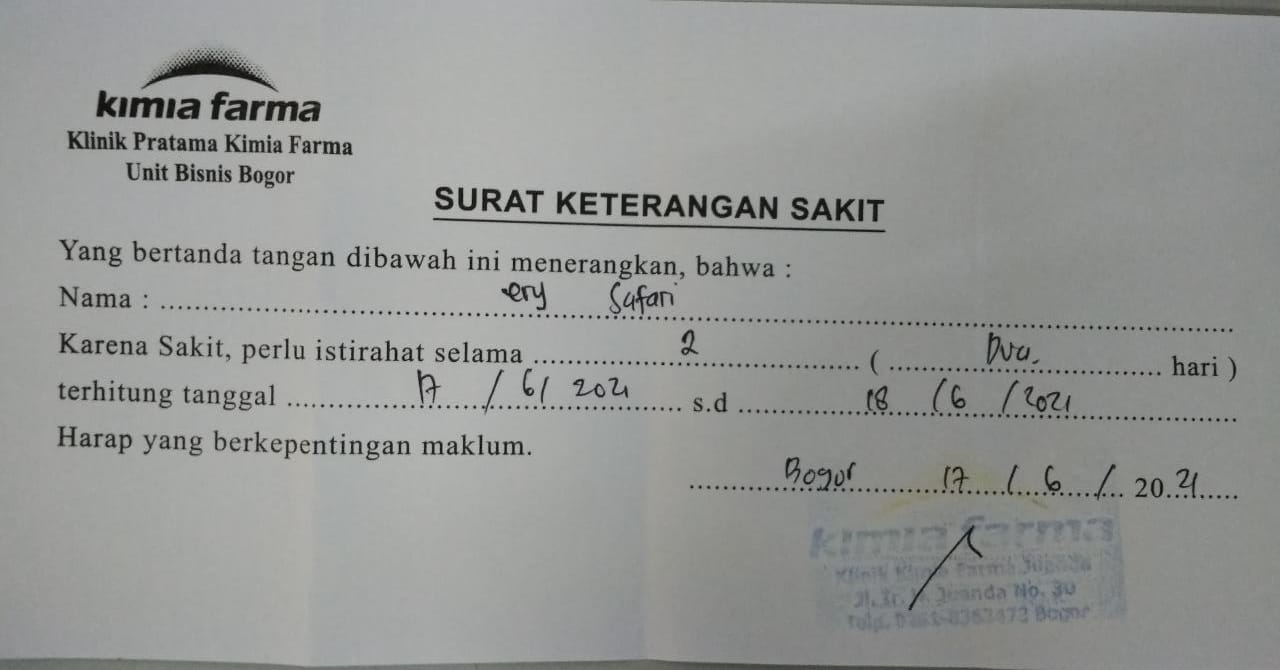 kimia farma
Klinik Pratama Kimia Farma
Unit Bisnis Bogor
SURAT KETERANGAN SAKIT
Yang bertanda tangan dibawah ini menerangkan, bahwa :
Nama : ery Safari
Karena Sakit, perlu istirahat selama 2 ( Dua. hari )
terhitung tanggal 17 / 6 / 2021 s.d 18 / 6 / 2021
Harap yang berkepentingan maklum.
Bogor 17 / 6 / 20.21
kimia farma
Klinik Farma Juanda
Jl. Ir. Juanda No. 30
Telp. Bogor